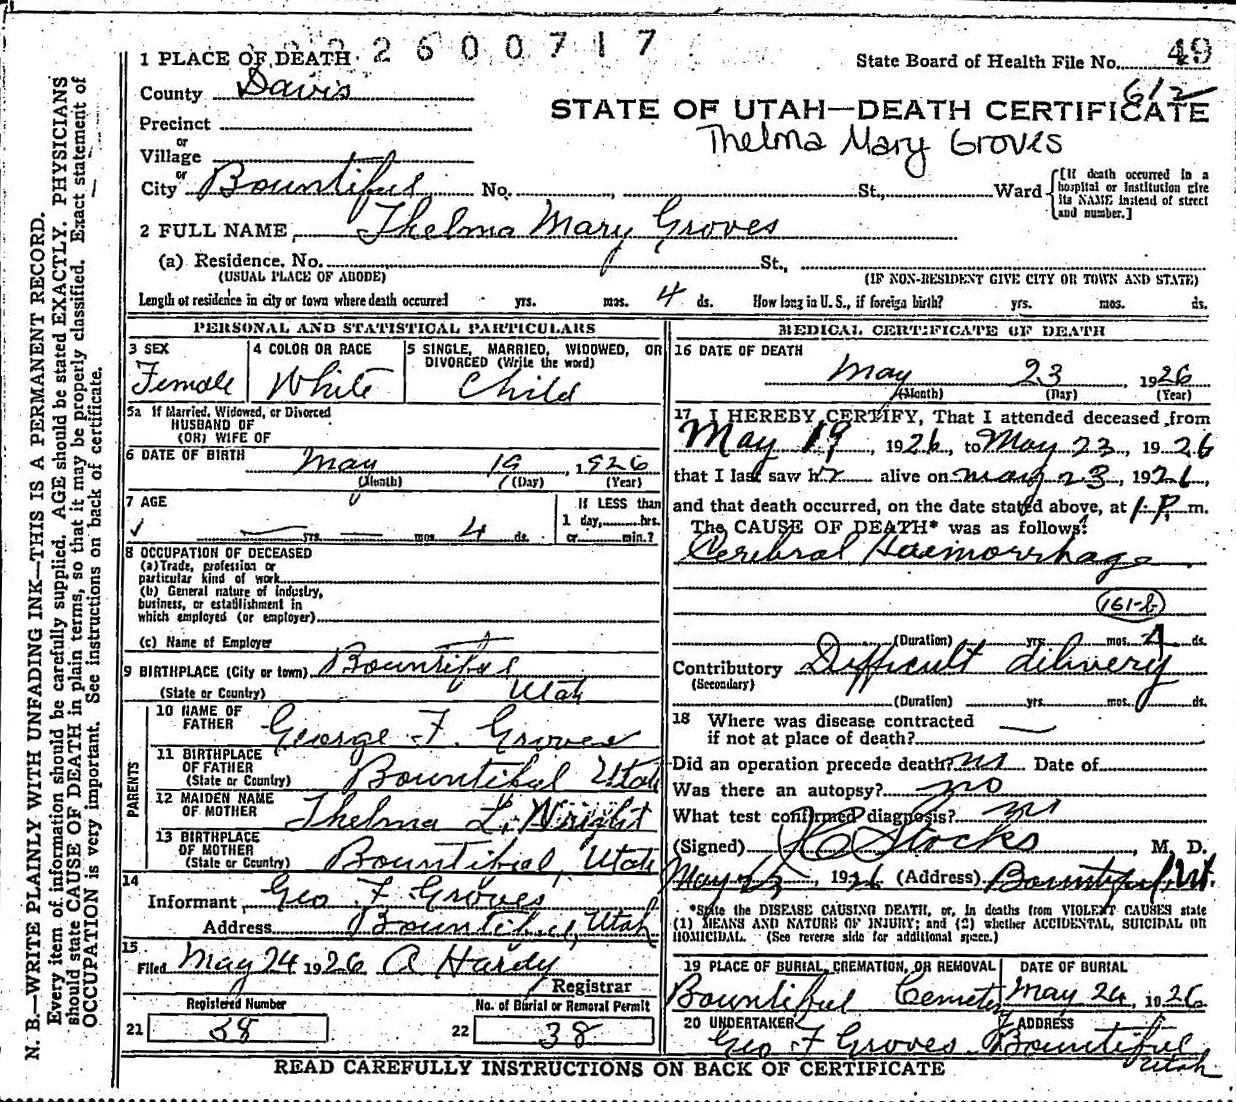 2 6 0 0 7 1 7
1 PLACE OF DEATH
State Board of Health File No. 49
County Davis
612
STATE OF UTAH—DEATH CERTIFICATE
Precinct
Thelma Mary Groves
or
Village
or
City Bountiful No. St., Ward
[If death occurred in a hospital or institution give its NAME instead of street and number.]
2 FULL NAME Thelma Mary Groves
(a) Residence. No. St.,
(USUAL PLACE OF ABODE) (IF NON-RESIDENT GIVE CITY OR TOWN AND STATE)
Length of residence in city or town where death occurred yrs. mos. 4 ds. How long in U. S., if foreign birth? yrs. mos. ds.
PERSONAL AND STATISTICAL PARTICULARS
3 SEX
Female
4 COLOR OR RACE
White
5 SINGLE, MARRIED, WIDOWED, OR
DIVORCED (Write the word)
Child
5a If Married, Widowed, or Divorced
HUSBAND OF
(OR) WIFE OF
6 DATE OF BIRTH May 19, 1926
(Month) (Day) (Year)
7 AGE
yrs. mos. 4 ds.
If LESS than
1 day, hrs.
or min.?
8 OCCUPATION OF DECEASED
(a) Trade, profession or
particular kind of work
(b) General nature of industry,
business, or establishment in
which employed (or employer)
(c) Name of Employer
9 BIRTHPLACE (City or town) Bountiful
(State or Country) Utah
PARENTS
10 NAME OF
FATHER George F. Groves
11 BIRTHPLACE
OF FATHER
(State or Country) Bountiful Utah
12 MAIDEN NAME
OF MOTHER Thelma L. Wright
13 BIRTHPLACE
OF MOTHER
(State or Country) Bountiful, Utah
14
Informant Geo F Groves
Address Bountiful, Utah
15
Filed May 24 1926 A Hardy
Registrar
Registered Number No. of Burial or Removal Permit
21 38 22 38
MEDICAL CERTIFICATE OF DEATH
16 DATE OF DEATH
May 23, 1926
(Month) (Day) (Year)
17 I HEREBY CERTIFY, That I attended deceased from
May 19, 1926, to May 23, 1926
that I last saw her alive on May 23, 1926,
and that death occurred, on the date stated above, at 1 P. m.
The CAUSE OF DEATH* was as follows:
Cerebral Haemorrhage
161-b
(Duration) yrs. mos. 4 ds.
Contributory Difficult delivery
(Secondary)
(Duration) yrs. mos. ds.
18 Where was disease contracted
if not at place of death?
Did an operation precede death? no Date of
Was there an autopsy? no
What test confirmed diagnosis? no
(Signed) Stocks, M. D.
May 23, 1926 (Address) Bountiful, Ut.
*State the DISEASE CAUSING DEATH, or, in deaths from VIOLENT CAUSES state
(1) MEANS AND NATURE OF INJURY; and (2) whether ACCIDENTAL, SUICIDAL OR
HOMICIDAL. (See reverse side for additional space.)
19 PLACE OF BURIAL, CREMATION, OR REMOVAL DATE OF BURIAL
Bountiful Cemetery May 24, 1926
20 UNDERTAKER ADDRESS
Geo F Groves Bountiful
Utah
READ CAREFULLY INSTRUCTIONS ON BACK OF CERTIFICATE
N. B.—WRITE PLAINLY WITH UNFADING INK—THIS IS A PERMANENT RECORD.
Every item of information should be carefully supplied. AGE should be stated EXACTLY. PHYSICIANS
should state CAUSE OF DEATH in plain terms, so that it may be properly classified. Exact statement of
OCCUPATION is very important. See instructions on back of certificate.